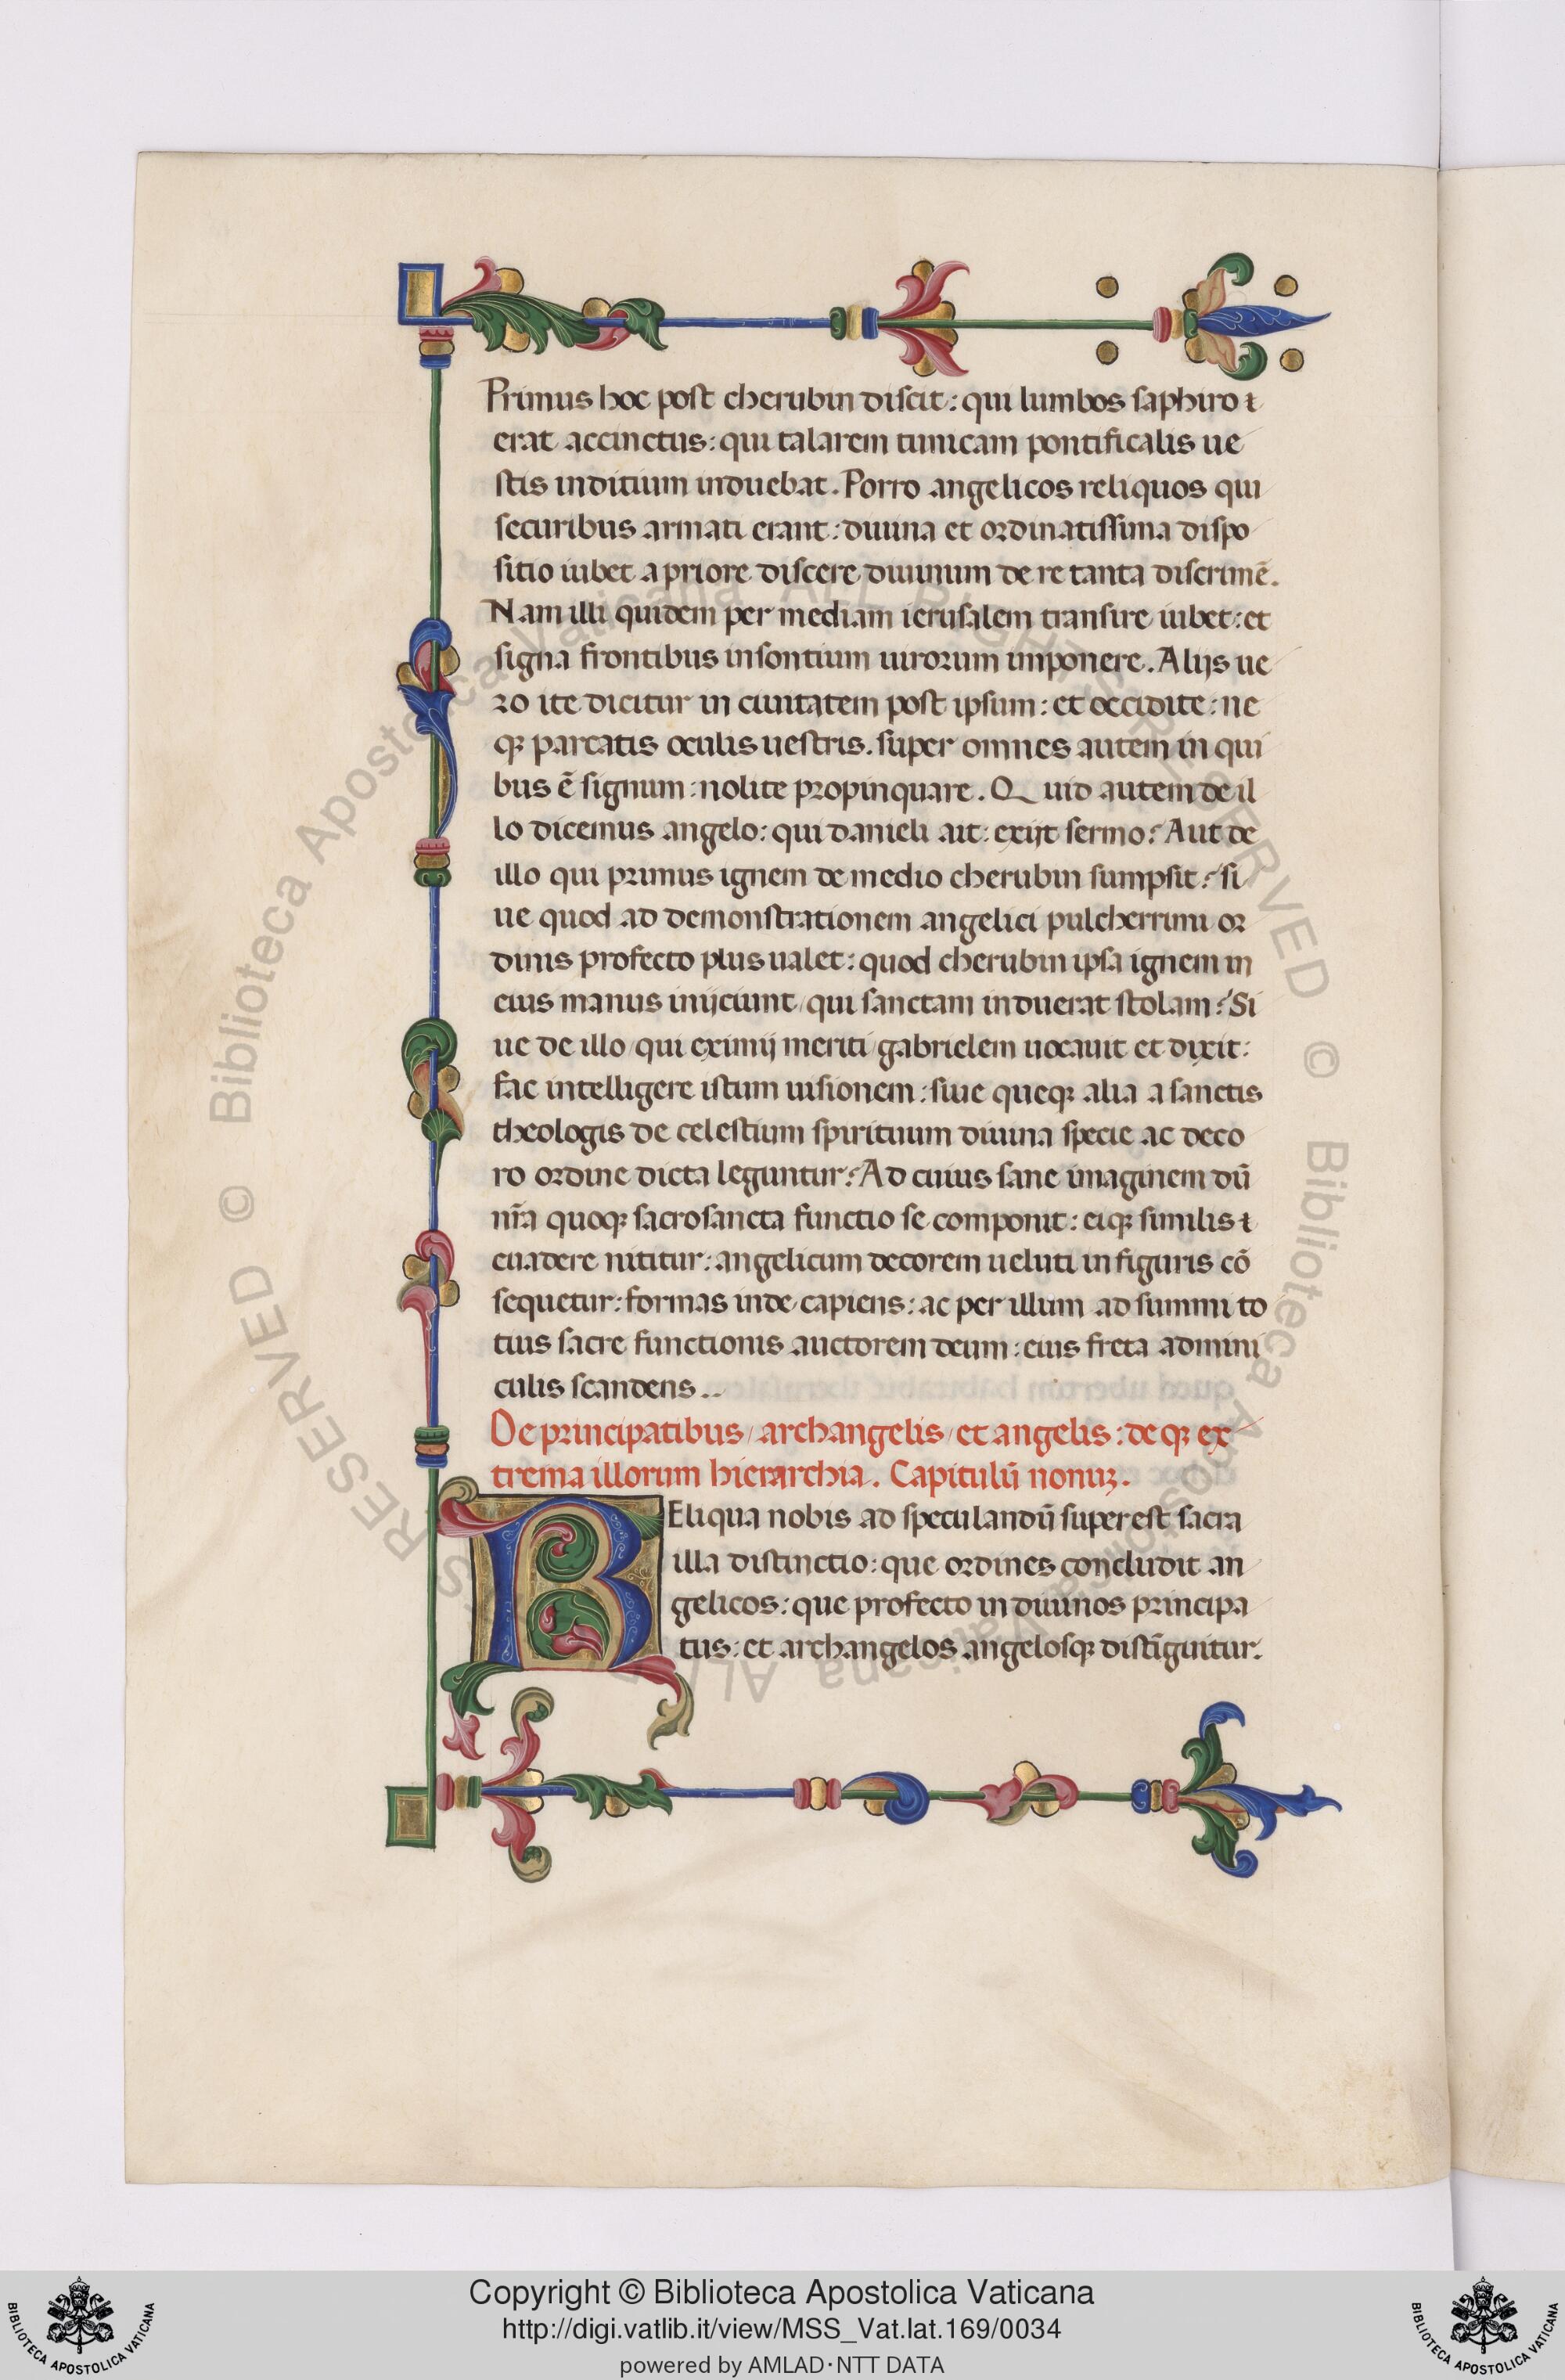 Primus hoc post cherubin discit: qui lumbos saphiro ⁊
erat accinctus: qui talarem tunicam pontificalis ue
stis inditium induebat. Porro angelicos reliquos qui
securibus armati erant: diuina et ordinatissima dispo
sitio iubet a priore discere diuinum de re tanta discrimē.
Nam illi quidem per mediam ierusalem transire iubet: et
signa frontibus insontium uirorum imponere. Alijs ue
ro ite dicitur in ciuitatem post ipsum: et occidite: ne
qꝫ parcatis oculis uestris. super omnes autem in qui
bus ē signum: nolite propinquare. Quid autem de il
lo dicemus angelo: qui danieli ait: exijt sermo? Aut de
illo qui primus ignem de medio cherubin sumpsit? si
ue quod ad demonstrationem angelici pulcherrimi or
dinis profecto plus ualet: quod cherubin ipsa ignem in
eius manus inijciunt/ qui sanctam induerat stolam? Si
ue de illo/ qui eximij meriti/ gabrielem uocauit et dixit:
fac intelligere istum uisionem: siue queqꝫ alia a sanctis
theologis de celestium spirituum diuina specie ac deco
ro ordine dicta leguntur? Ad cuius sane imaginem dū
nr̄a quoqꝫ sacrosancta functio se componit: eiqꝫ similis ⁊
euadere nititur: angelicum decorem ueluti in figuris cō
sequetur: formas inde/ capiens: ac per illum ad summi to
tius sacre functionis auctorem deum: eius freta admini
culis scandens..
De principatibus/ archangelis/ et angelis: deqꝫ ex
trema illorum hierarchia. Capitulū nonuꝫ.
REliqua nobis ad speculandū superest sacra
illa distinctio: que ordines concludit an
gelicos: que profecto in diuinos principa
tus: et archangelos angelosqꝫ distīguitur.
© Biblioteca Apostolica Vaticana ALL RIGHTS RESERVED © Biblioteca Apostolica Vaticana ALL RIGHTS RESERVED
Copyright © Biblioteca Apostolica Vaticana
http://digi.vatlib.it/view/MSS_Vat.lat.169/0034
powered by AMLAD·NTT DATA
BIBLIOTECA APOSTOLICA VATICANA
BIBLIOTECA APOSTOLICA VATICANA